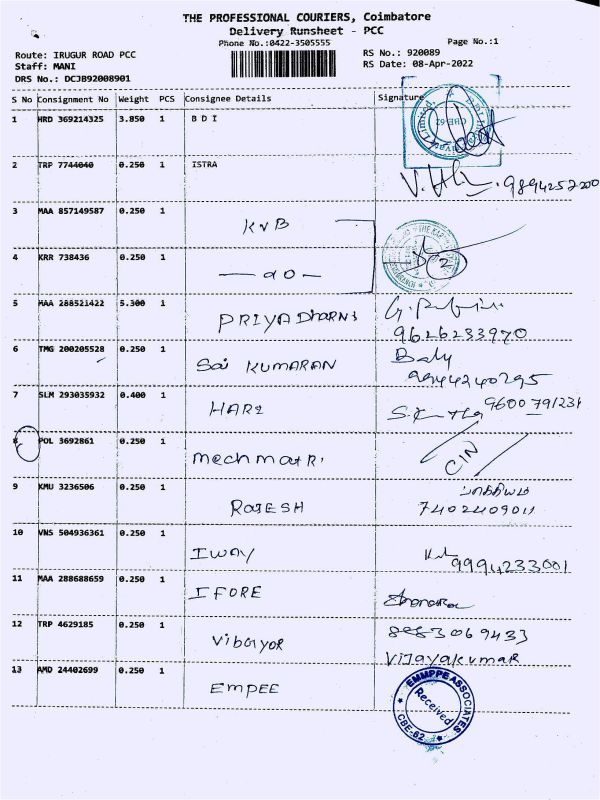 THE PROFESSIONAL COURIERS, Coimbatore
Delivery Runsheet - PCC
Phone No.:0422-3505555
Page No.:1
Route: IRUGUR ROAD PCC
RS No.: 920089
Staff: MANI
RS Date: 08-Apr-2022
DRS No.: DCJB92008901
S No Consignment No Weight PCS Consignee Details Signature
1 HRD 369214325 3.850 1 B D I
CBE-62
2 TRP 7744040 0.250 1 ISTRA
9894252200
3 MAA 857149587 0.250 1 KVB
4 KRR 738436 0.250 1 — do —
5 MAA 288521422 5.300 1 PRIYADHARNI
9626233970
6 TMG 200205528 0.250 1 Sai KUMARAN
9944240295
7 SLM 293035932 0.400 1 HARI 9600791231
8 POL 3692861 0.250 1 mechmatri CIN
9 KMU 3236506 0.250 1 RAJESH
7402409011
10 VNS 504936361 0.250 1 IWAY 9994233001
11 MAA 288688659 0.250 1 IFORE
12 TRP 4629185 0.250 1 Vibgyor 8883069433
Vijayakumar
13 AMD 24402699 0.250 1 EMPEE
EMMPPE ASSOCIATES
Received
CBE-62